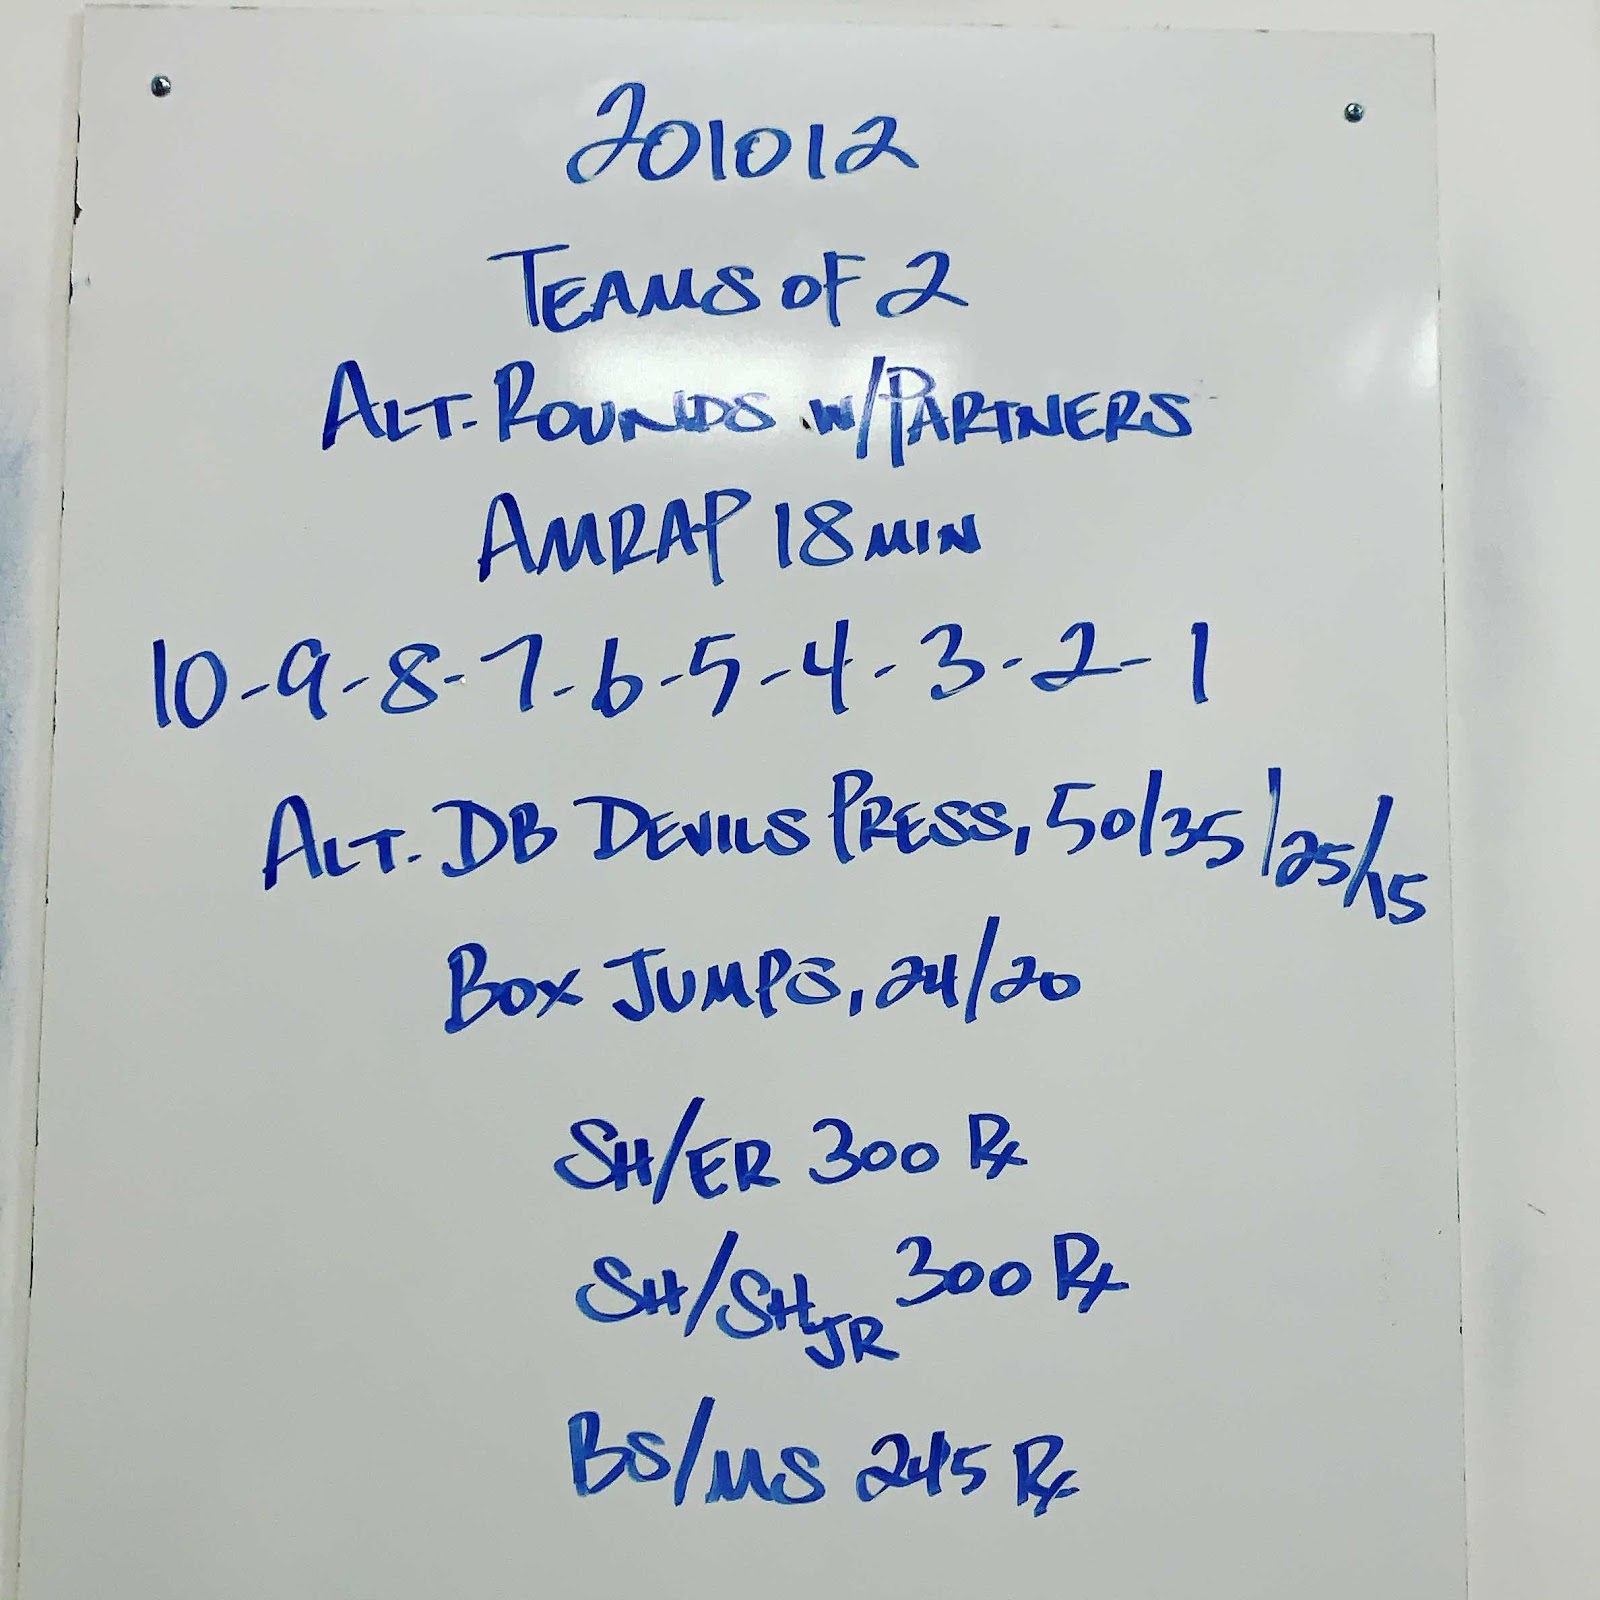 201012
TEAMS OF 2
ALT. ROUNDS W/PARTNERS
AMRAP 18 MIN
10-9-8-7-6-5-4-3-2-1
ALT. DB DEVILS PRESS, 50/35/25/15
BOX JUMPS, 24/20
SH/ER 300 Rx
SH/SHJR 300 Rx
BS/MS 245 Rx